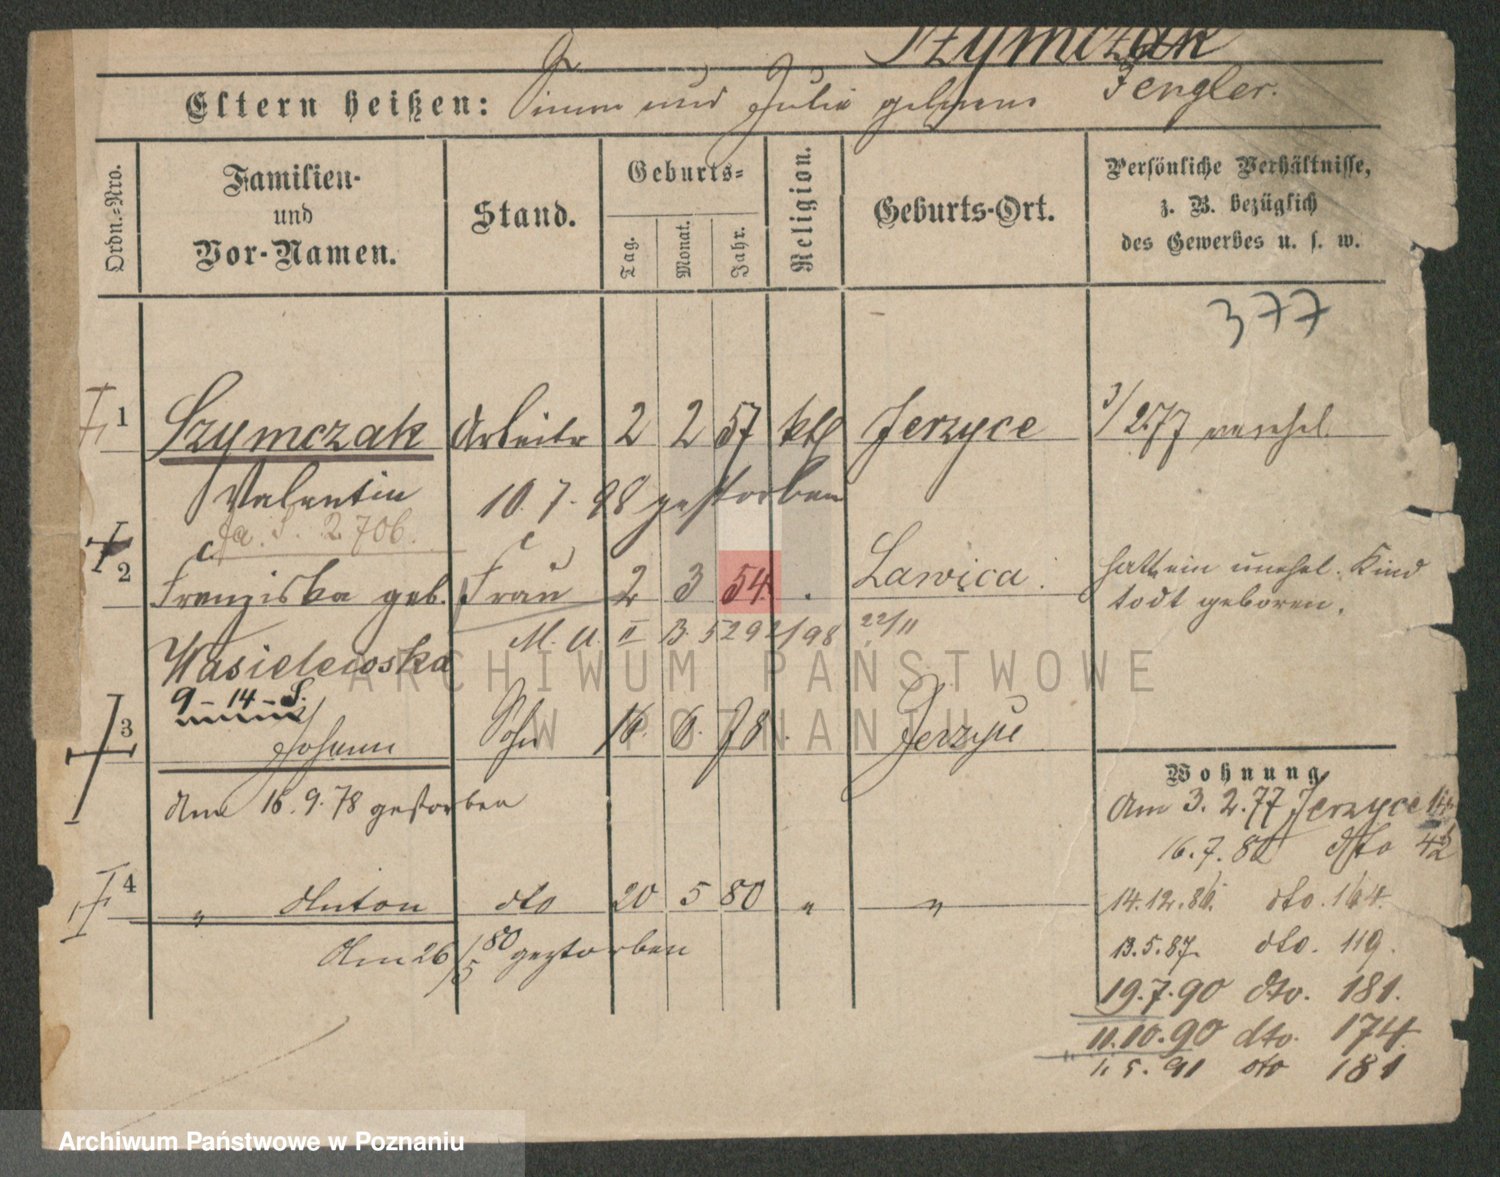 Szymczak
Eltern heißen: Simon und Julie geborene Zengler.
Ordn.-Nro.
Familien- und Vor-Namen.
Stand.
Geburts-
Tag. Monat. Jahr.
Religion.
Geburts-Ort.
Persönliche Verhältnisse, z. B. bezüglich des Gewerbes u. s. w.
377
1 Szymczak Arbeiter 2 2 57 kth Jerzyce 3/2.77 verehel.
Valentin 10.7.98 gestorben
2 706.
2 Franziska geb. Frau 2 3 54. Lawica. hatt ein unehel. Kind
todt geboren.
M. A. II B. 5292/98 22/11
Wasielewska
9 - 14 - S.
3 Johann Sohn 16. 6. 78. Jerzyce
Am 16.9.78 gestorben
4 " Anton dto 20 5 80 " "
Am 26/5 80 gestorben
Wohnung
Am 3.2.77 Jerzyce
16.7.82 dto 42
14.12.86. dto. 164.
13.5.87. dto. 119.
19.7.90 dto. 181.
11.10.90 dto. 174
1.5.91 dto 181
ARCHIWUM PAŃSTWOWE
W POZNANIU
Archiwum Państwowe w Poznaniu